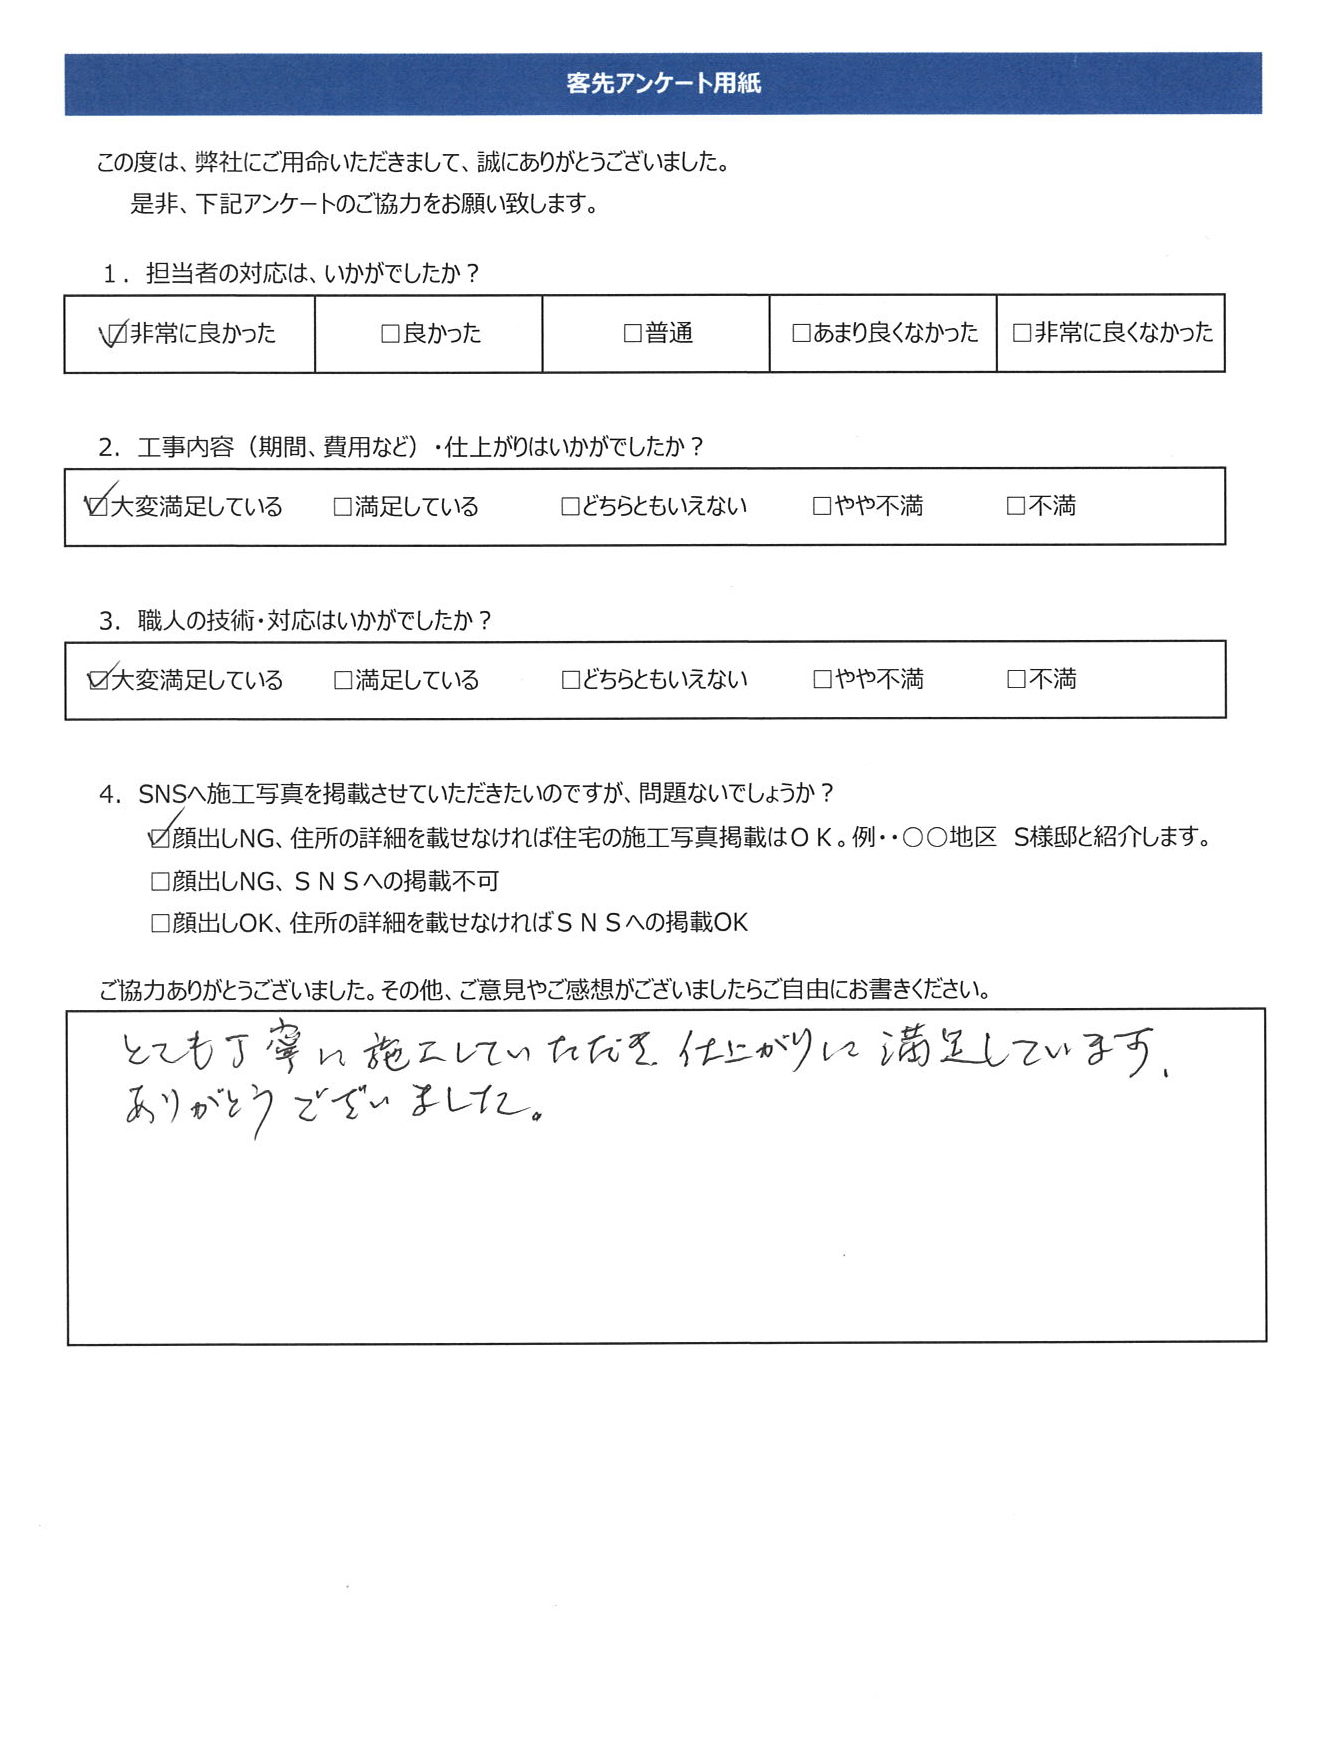 客先アンケート用紙
この度は、弊社にご用命いただきまして、誠にありがとうございました。
是非、下記アンケートのご協力をお願い致します。
１．担当者の対応は、いかがでしたか？
☑非常に良かった □良かった □普通 □あまり良くなかった □非常に良くなかった
2．工事内容（期間、費用など）・仕上がりはいかがでしたか？
☑大変満足している □満足している □どちらともいえない □やや不満 □不満
3．職人の技術・対応はいかがでしたか？
☑大変満足している □満足している □どちらともいえない □やや不満 □不満
4．SNSへ施工写真を掲載させていただきたいのですが、問題ないでしょうか？
☑顔出しNG、住所の詳細を載せなければ住宅の施工写真掲載はＯＫ。例・・〇〇地区　S様邸と紹介します。
□顔出しNG、ＳＮＳへの掲載不可
□顔出しOK、住所の詳細を載せなければＳＮＳへの掲載OK
ご協力ありがとうございました。その他、ご意見やご感想がございましたらご自由にお書きください。
とても丁寧に施工していただき、仕上がりに満足しています、
ありがとうございました。